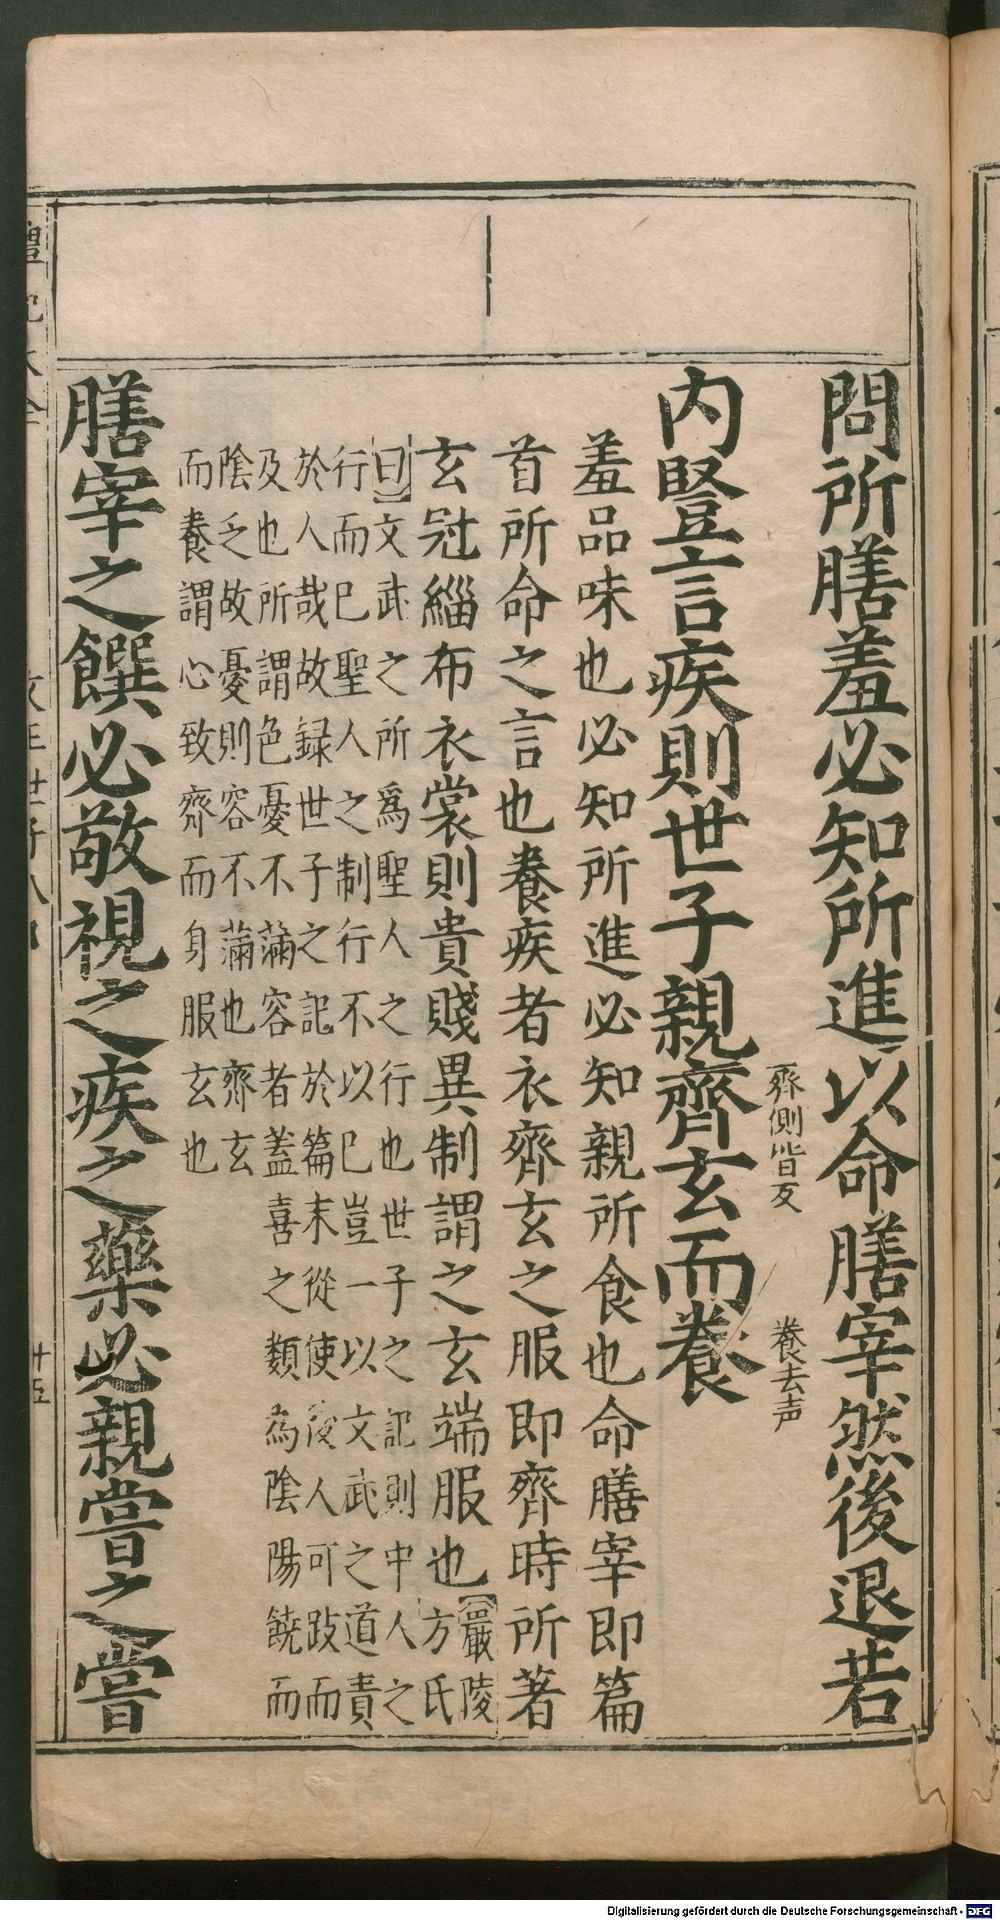 問所膳羞必知所進以命膳宰然後退若
齊側皆反
養去声
内豎言疾則世子親齊玄而養
羞品味也必知所進必知親所食也命膳宰即篇
首所命之言也養疾者衣齊玄之服即齊時所著
玄冠緇布衣裳則貴賤異制謂之玄端服也
嚴陵
方氏
曰文武之所爲聖人之行也世子之記則中人之
行而已聖人之制行不以已豈一以文武之道責
於人哉故録世子之記於篇末從使後人可跂而
及也所謂色憂不滿容者蓋喜之類為陰陽饒而
陰乏故憂則容不滿也齊玄
而養謂心致齊而身服玄也
膳宰之饌必敬視之疾之藥必親嘗之嘗
文王世子八
十五
Digitalisierung gefördert durch die Deutsche Forschungsgemeinschaft - DFG